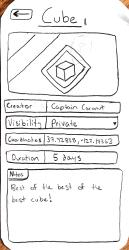 Cube
Creator Captain Coconut
Visibility Private
Coordinates
Duration 5 days
Notes
Best of the best of the
best cube!